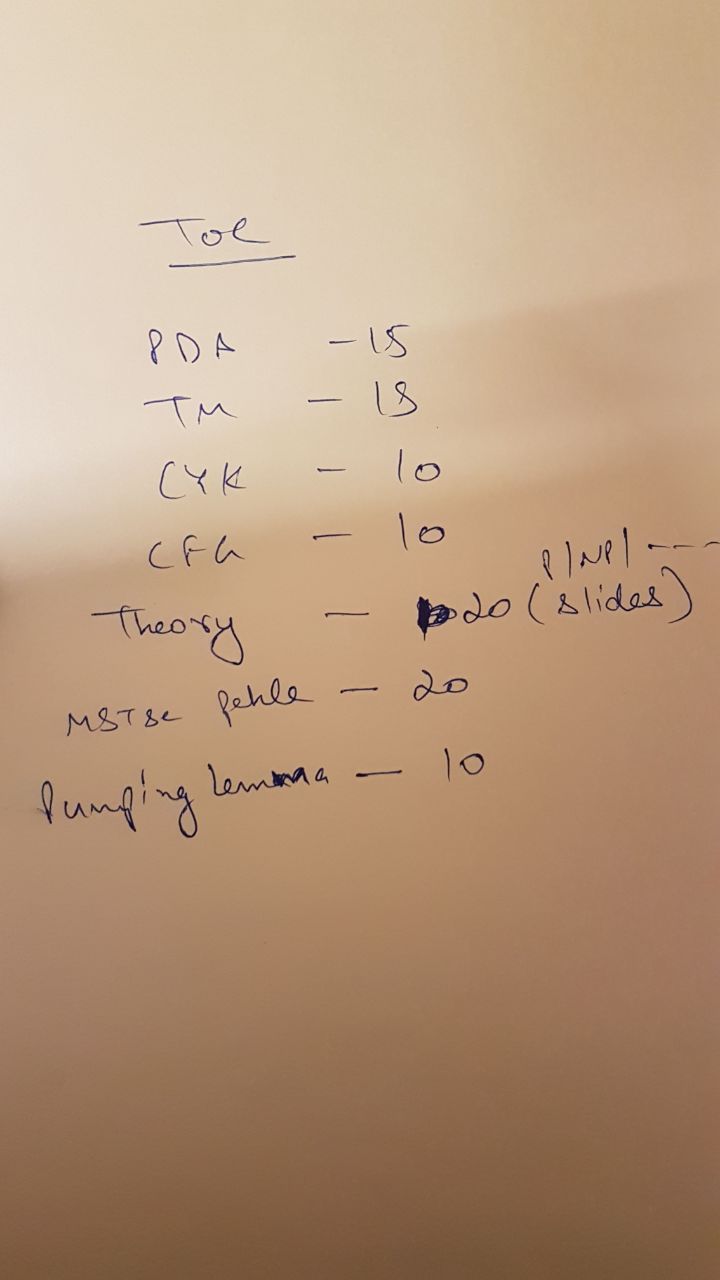 TOC
PDA - 15
TM - 15
CYK - 10
CFG - 10
P/NP/ ----
Theory - 20 (slides)
MSTse pehle - 20
Pumping lemma - 10